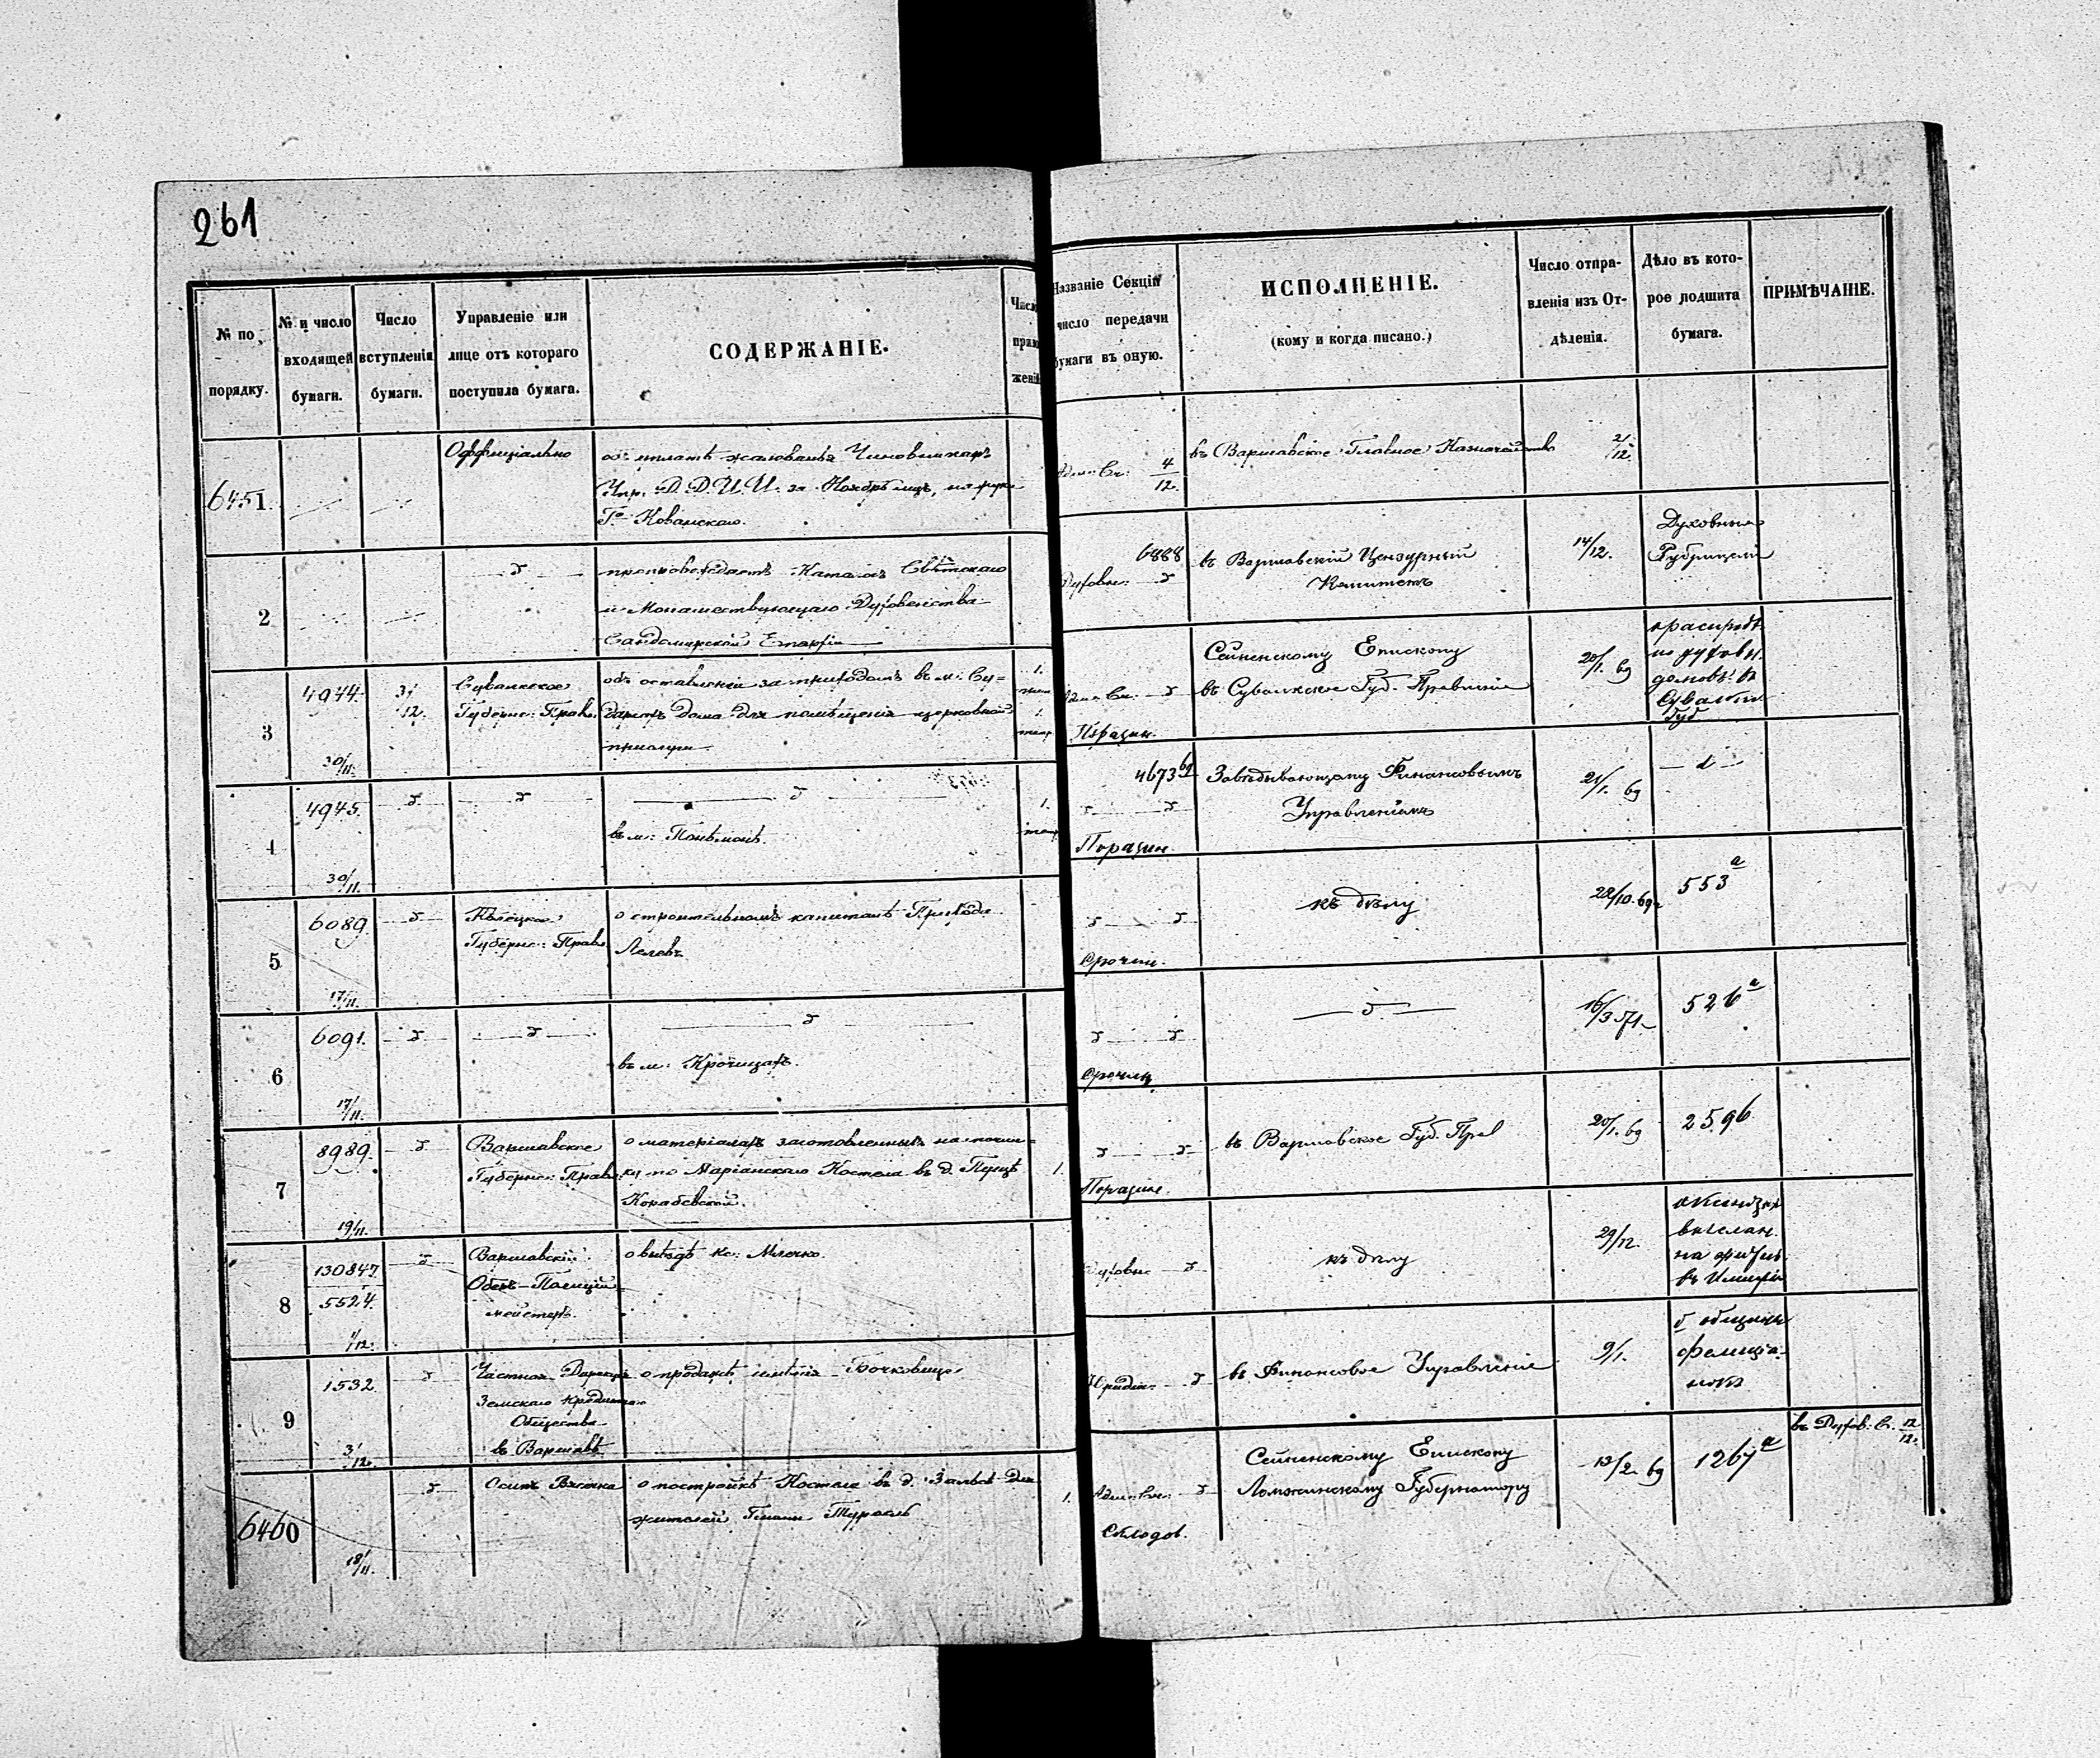 261
№ по порядку.
№ и число входящей бумаги.
Число вступленія бумаги.
Управленіе или лице отъ котораго поступила бумага.
СОДЕРЖАНІЕ.
Названіе Секціи число передачи бумаги въ оную.
ИСПОЛНЕНІЕ.
(кому и когда писано.)
Число отправленія изъ Отдѣленія.
Дѣло въ которое подшита бумага.
ПРИМѢЧАНІЕ.
6451.
Оффиціально
объ уплатѣ жалованья Чиновникамъ
Упр. Д. Д. И. И. за Ноябрь мцъ, на руки
Гна Ковалскаго.
4/12.
въ Варшавское Главное Казначейство
2/12.
2
препровождаетъ Каталогъ Свѣтскаго
и Монашествующаго Духовенства
Сандомирской Епархіи
6888
Духовн:
въ Варшавскій Цензурный
Комитетъ
14/12.
Духовныя
Рубрицели
3
4944
30/11.
3/12.
Сувалкское
Губернс: Правл.
объ оставленіи за приходомъ въ м: Су=
даргѣ дома для помѣщенія церковной
прислуги
1.
1.
Сейненскому Епископу
въ Сувалкское Губ. Правленіе
20/1. 69
о распредѣ.
по духовн.
домовъ въ
Сувалкс.
Губ
4
4945.
30/11.
въ м: Понѣмонѣ.
1.
4673 69
Завѣдывающему Финансовымъ
Управленіемъ
21/1. 69
5
6089.
17/11.
Кѣлецкое
Губернс: Правл.
о строительномъ капиталѣ Прихода
Леловъ
Срочн.
къ дѣлу
28/10. 69
553 а
6
6091.
17/11.
въ м: Крочицахъ.
16/3 71
526 а
7
8989.
19/11.
Варшавское
Губернс: Правл.
о матеріалахъ заготовленныхъ на почин=
ку по Маріанскаго Костела въ д. Пущѣ
Корабевской.
1.
въ Варшавское Губ. Прав
20/1. 69
2596
8
130847
5524.
1/12.
Варшавскій
Оберъ-Полицій
мейстеръ.
о выѣздѣ кс: Млечко.
Духовн
къ дѣлу
29/12.
о ксендзахъ
выслан.
на житье
въ Имперіи
9
1532.
3/12.
Частная Дирекція
Земскаго Кредитнаго
Общества
въ Варшавѣ
о продажѣ имѣнія Бочковице
Юридич.
въ Финансовое Управленіе
9/1.
6460
18/11.
о постройкѣ Костела въ д. Залѣсѣ для
жителей Гмины Туроснь
1.
Сейненскому Епископу
Ломжинскому Губернатору
13/2. 69
1267 а
въ Духов. С. 12/12.